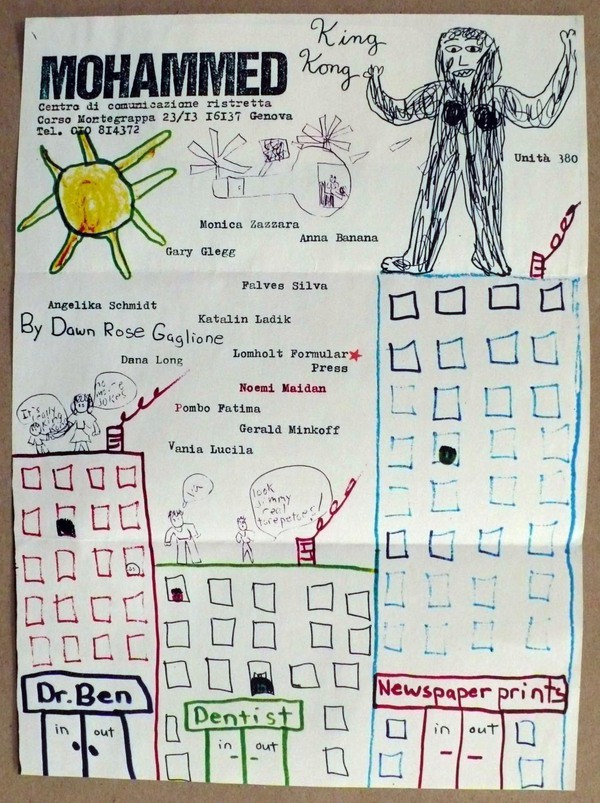 King
Kong
MOHAMMED
Centro di comunicazione ristretta
Corso Montegrappa 23/13 16137 Genova
Tel. 010 814372
Unità 380
Monica Zazzara
Anna Banana
Gary Glegg
Falves Silva
Angelika Schmidt
Katalin Ladik
By Dawn Rose Gaglione
Dana Long
Lomholt Formular
Press
Noemi Maidan
Pombo Fatima
Gerald Minkoff
Vania Lucila
no more
Jokes
It's
look
Jimmy
real
Dr. Ben
in out
Dentist
in out
Newspaper prints
in out